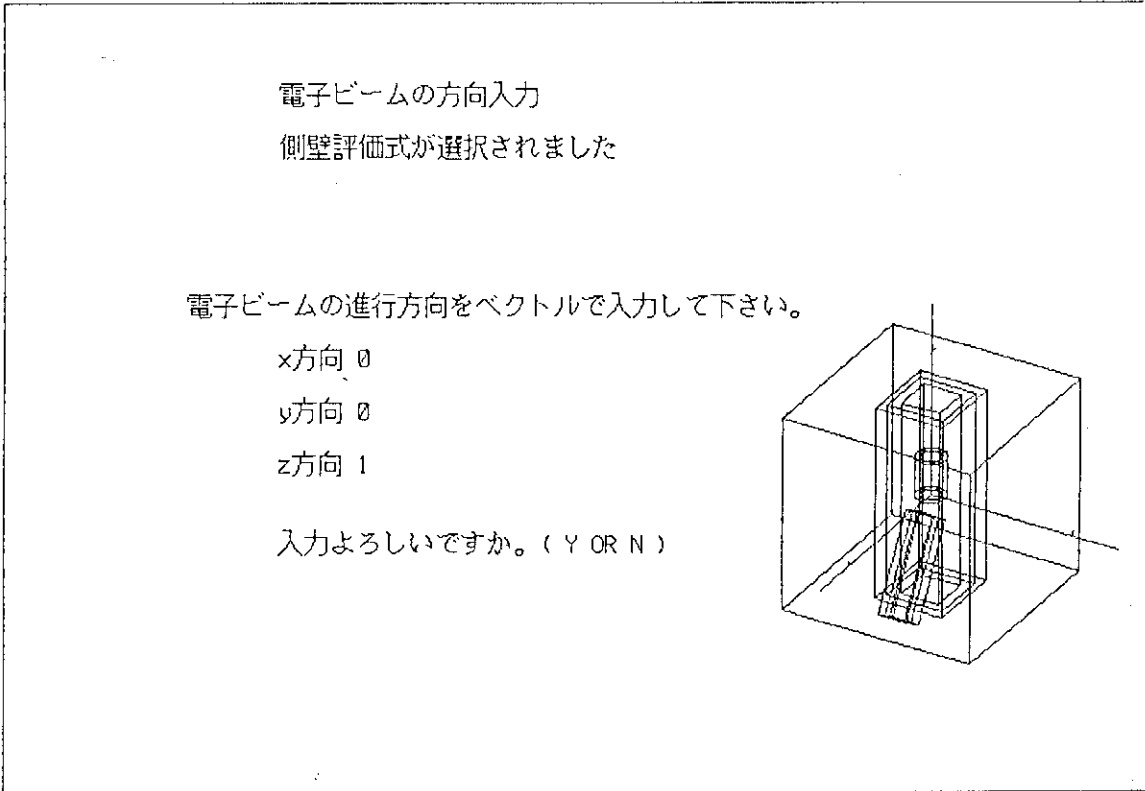 電子ビームの方向入力
側壁評価式が選択されました
電子ビームの進行方向をベクトルで入力して下さい。
x方向 0
y方向 0
z方向 1
入力よろしいですか。( Y OR N )